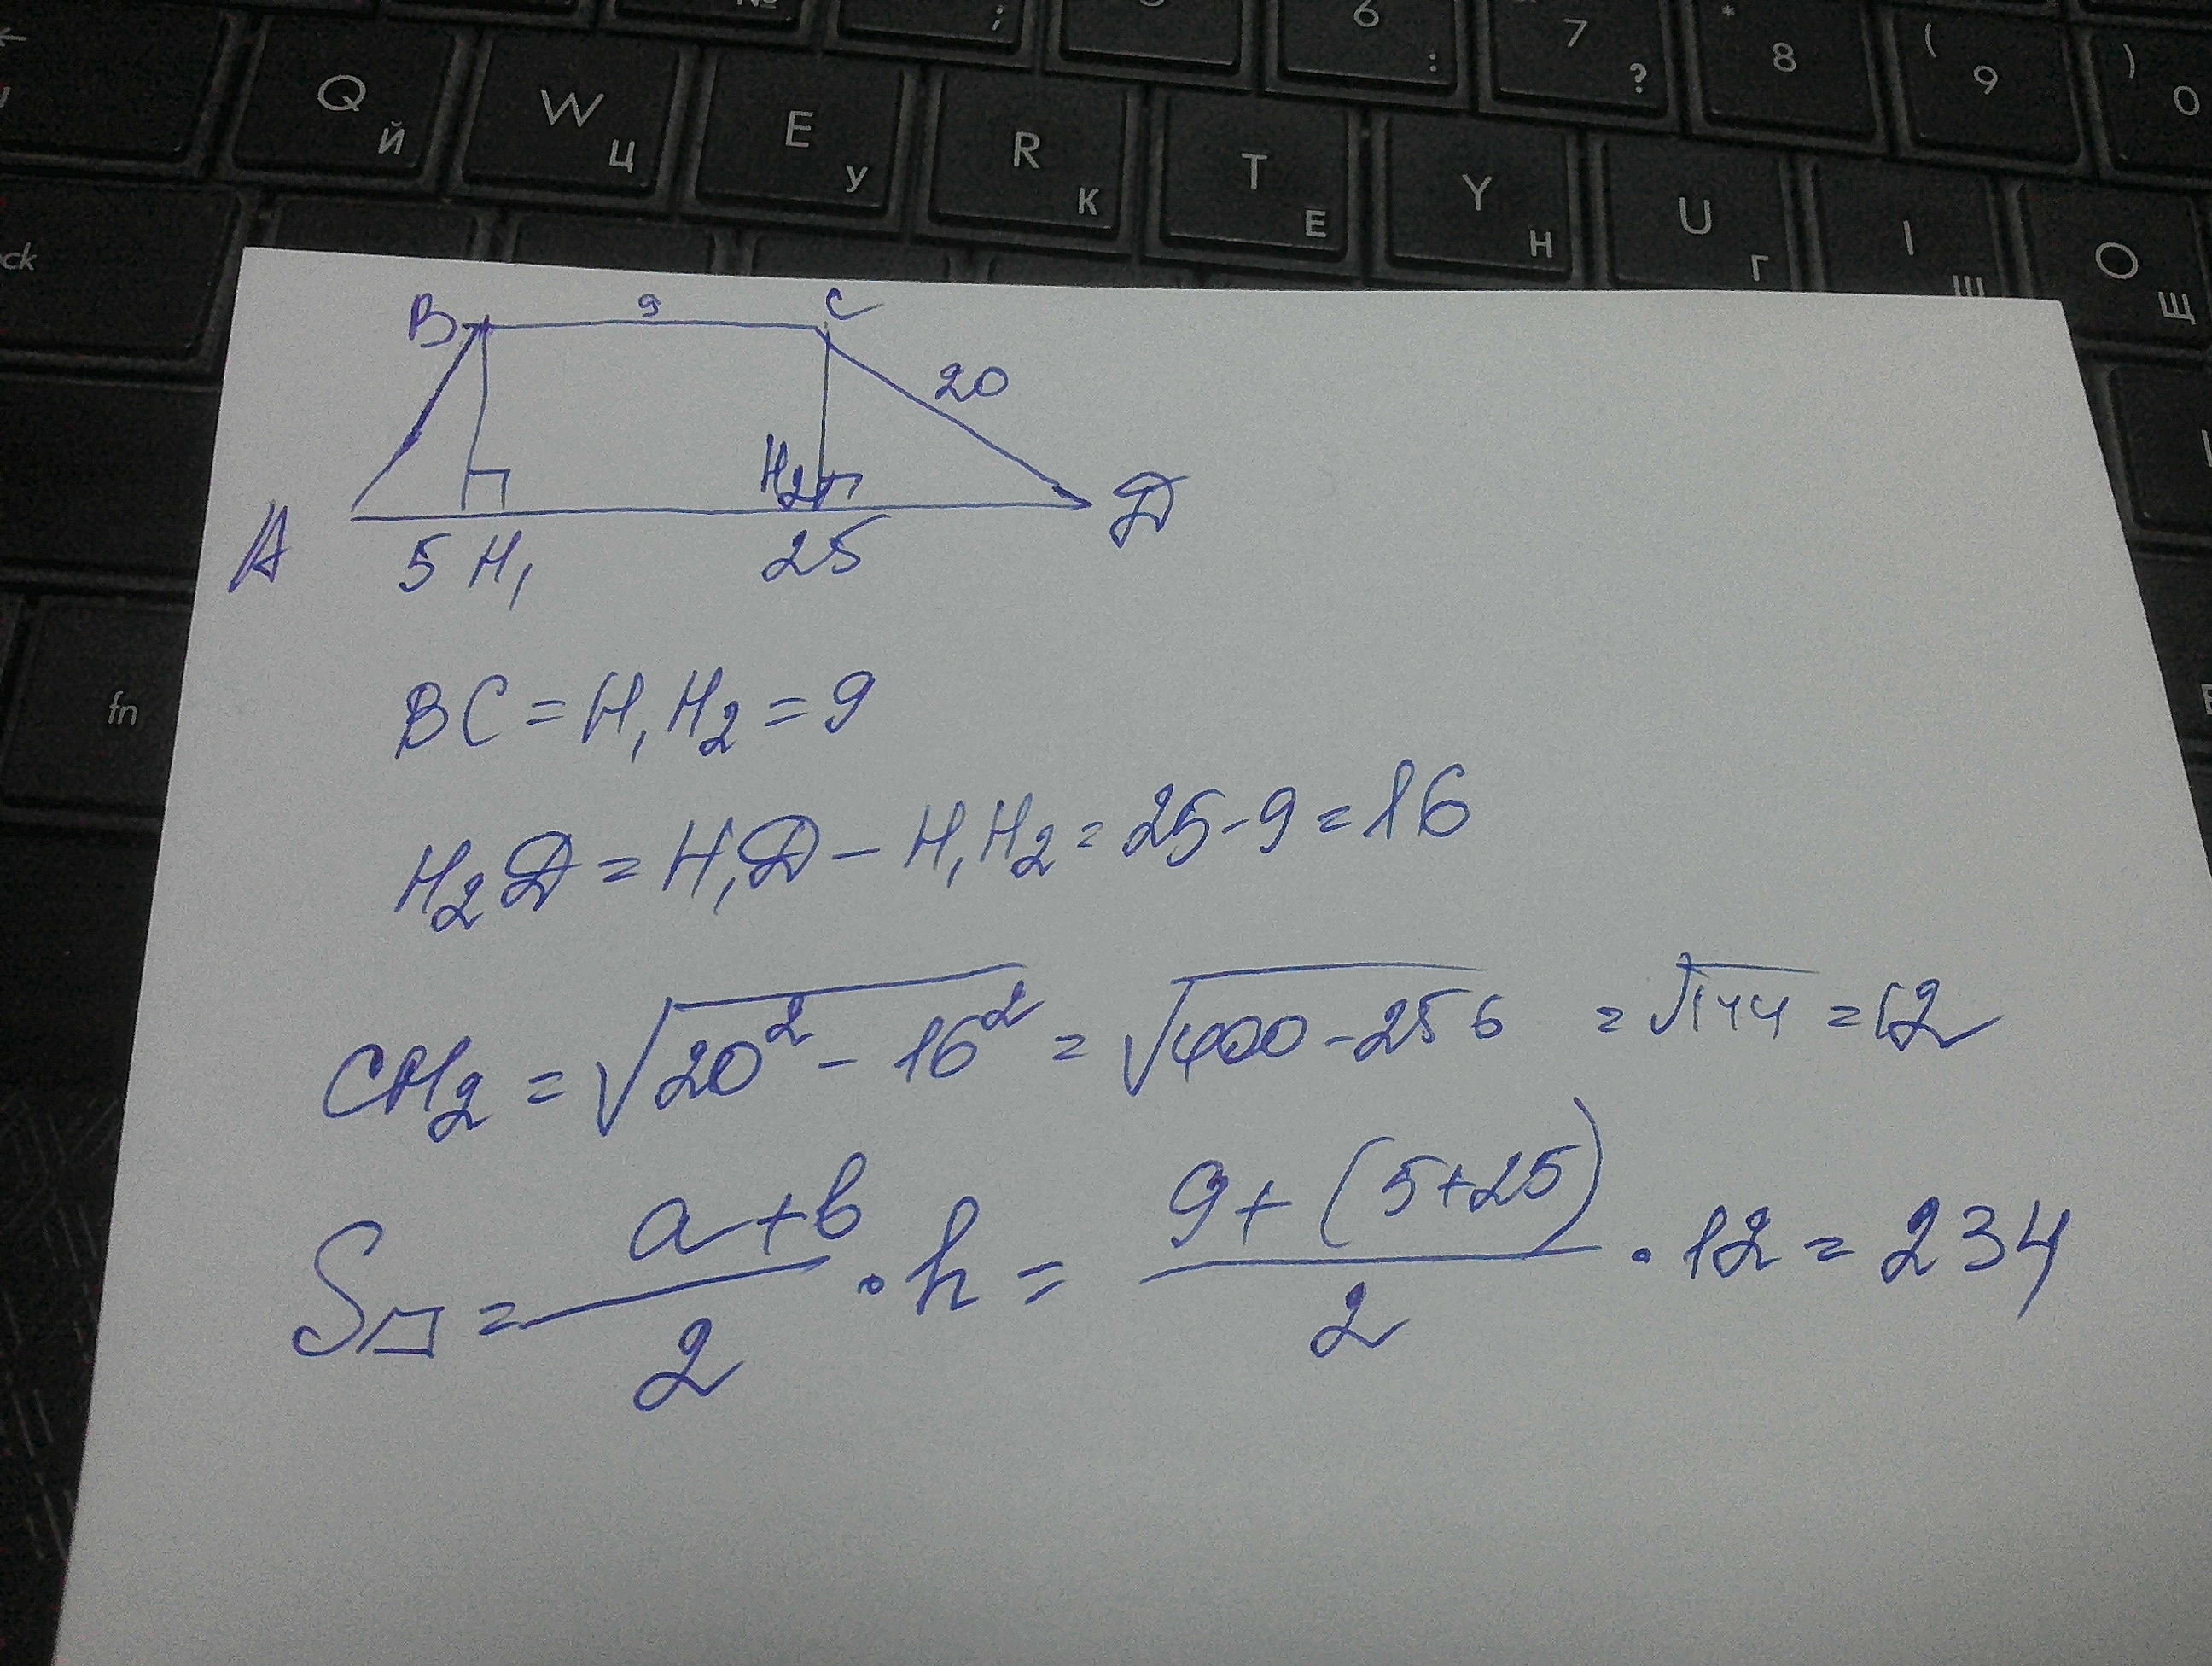 6 7 8 9 0
; : ? * ( )
Q W E R T Y U I O
Й Ц У К Е Н Г Ш Щ
ck
fn
B 9 C
20
H₂
A 5 H₁ 25 Д
BC = H₁H₂ = 9
H₂Д = H₁Д - H₁H₂ = 25 - 9 = 16
CH₂ = √20² - 16² = √400 - 256 = √144 = 12
S▱ = a+b/2 · h = 9+(5+25)/2 · 12 = 234